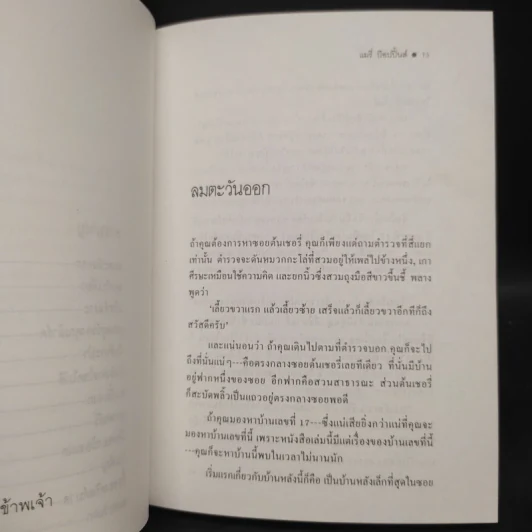 แมรี่ ป๊อปปิ้นส์
ลมตะวันออก
ถ้าคุณต้องการหาซอยต้นเชอรี่ คุณก็เพียงแต่ถามตำรวจที่สี่แยก
เท่านั้น ตำรวจจะดันหมวกกะโล่ที่สวมอยู่ให้เพล่ไปข้างหนึ่ง, เกา
ศีรษะเหมือนใช้ความคิด และยกนิ้วซึ่งสวมถุงมือสีขาวขึ้นชี้ พลาง
พูดว่า
'เลี้ยวขวาแรก แล้วเลี้ยวซ้าย เสร็จแล้วก็เลี้ยวขวาอีกทีก็ถึง
สวัสดีครับ'
และแน่นอนว่า ถ้าคุณเดินไปตามที่ตำรวจบอก คุณก็จะไป
ถึงที่นั่นแน่ๆ---คือตรงกลางซอยต้นเชอรี่เลยทีเดียว ที่นั่นมีบ้าน
อยู่ฟากหนึ่งของซอย อีกฟากคือสวนสาธารณะ ส่วนต้นเชอรี่
ก็สะบัดพลิ้วเป็นแถวอยู่ตรงกลางซอยพอดี
ถ้าคุณมองหาบ้านเลขที่ 17---ซึ่งแน่เสียยิ่งกว่าแน่ที่คุณจะ
มองหาบ้านเลขที่นี้ เพราะหนังสือเล่มนี้มีแต่เรื่องของบ้านเลขที่นี้
---คุณก็จะหาบ้านนี้พบในเวลาไม่นานนัก
เริ่มแรกเกี่ยวกับบ้านหลังนี้ก็คือ เป็นบ้านหลังเล็กที่สุดในซอย
ข้าพเจ้า